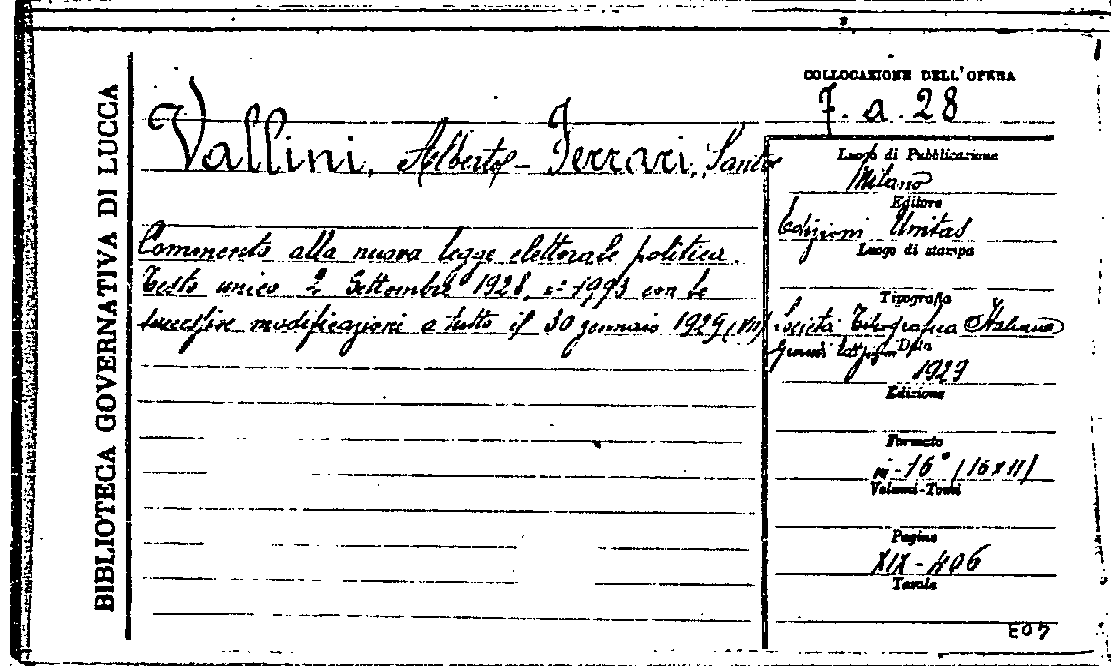 BIBLIOTECA GOVERNATIVA DI LUCCA
COLLOCAZIONE DELL'OPERA
7. a. 28
Vallini, Alberto - Ferrari, Santo
Commento alla nuova legge elettorale politica.
Testo unico 2 Settembre 1928, nº 1993 con le
successive modificazioni a tutto il 30 gennaio 1929 (VII)
Luogo di Pubblicazione
Milano
Editore
Edizioni Unitas
Luogo di stampa
Tipografia
Società Tipografica Italiana
Data
1929
Edizione
Formato
in-16° (16x11)
Volumi-Tomi
Pagine
XIX-406
Tavole
E07